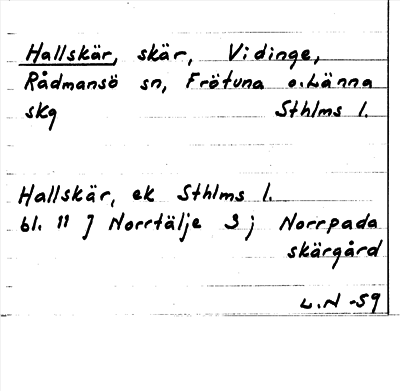 Hallskär, skär, Vidinge,
Rådmansö sn, Frötuna o. Länna
skg Sthlms l.
Hallskär, ek Sthlms l.
bl. 11 J Norrtälje S; Norrpada
skärgård
L.N -59